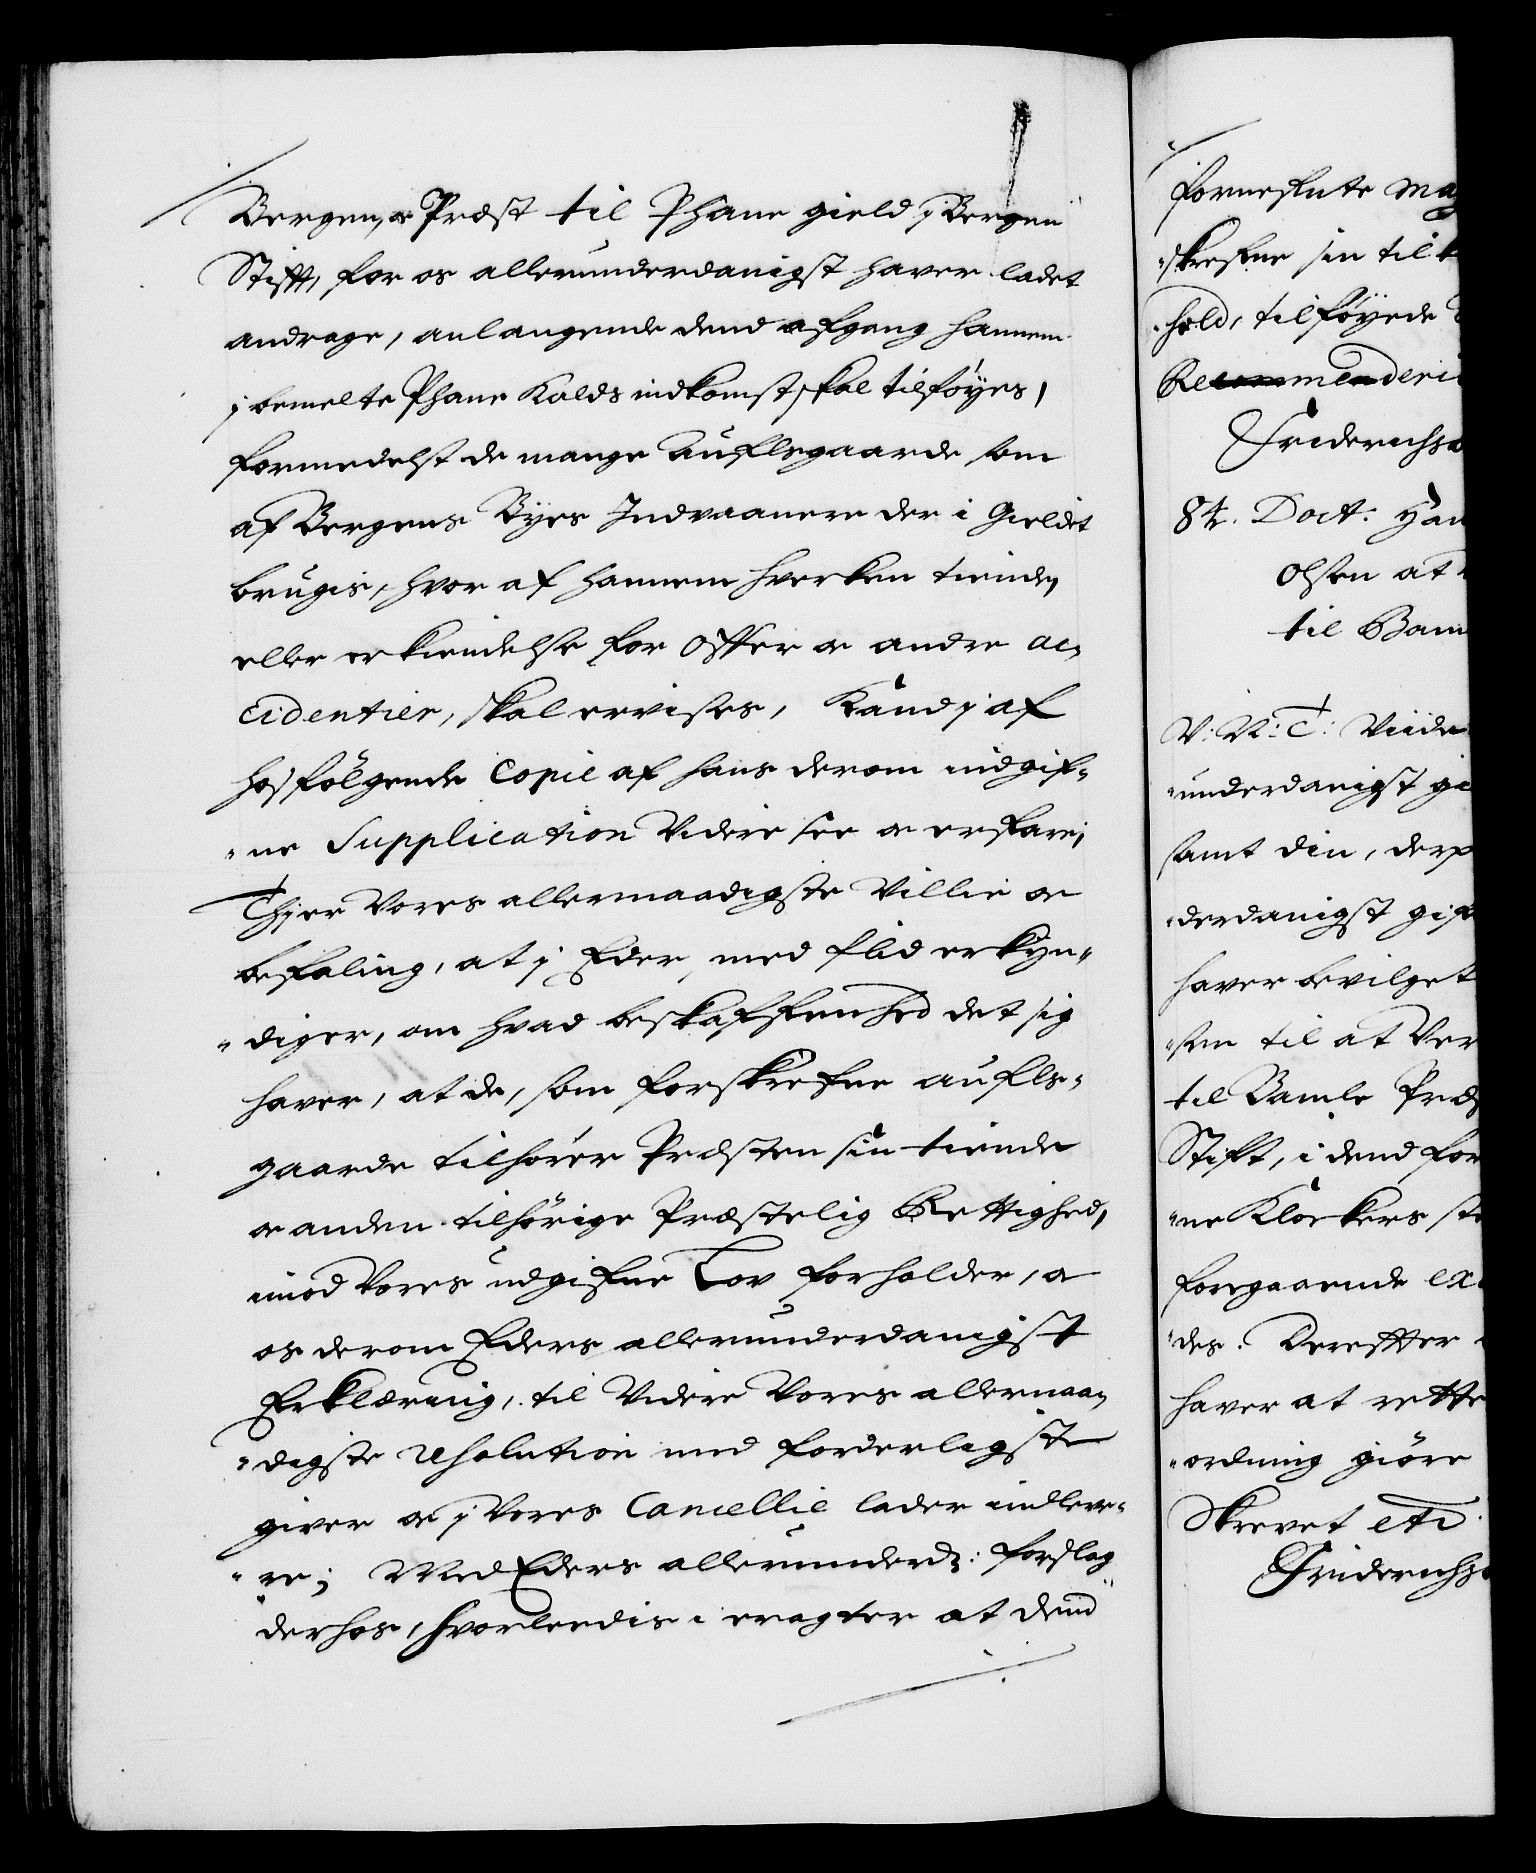 Bergen, oc Præst til Phane gield j Bergen
Stifft, for os allerunderdanigst haver ladet
andrage, anlangende dend afgang hannem
j bemelte Phane Kalds indkomst skal tilføyes,
formedelst de mange aufls gaarde som
af Bergens Byes Indvaanere der i Gieldet
brugis, hvor af hannem hverken tiende,
eller erkiendelse for offer oc andre ac-
cidentier, skal ervises, Kand j af
hosfölgende Copie af hans derom indgif-
ne Supplication Videre see oc erfare;
Thj er Vores allernaadigste Villie oc
befaling, at j Eder med flid erkyn-
diger, om hvad beskaffenhed det sig
haver, at de, som forskrefne aufls-
gaarde tilhører Præsten sin tiende
oc anden tilhörige Præstelig Rettighed,
imod Vores udgifne Lov forholder, oc
os derom Eders allerunderdanigst
Erklæring, til Videre Vores allernaa-
digste resolution med forderligste
giver oc j Vores Cancellie lader indleve-
re; Med Eders allerunderd: forslag
derhos, hvorledis i eragter at dend
forneste
skrefne sin til
hold, tilföyede
Friderichs
84. Doct: Han
Olsen at
til Bam
V: N: T: Viide
underdanigst gi
samt din, derp
derdanigst gif
haver bevilget
sen til at Ver
til Bamle Præs
Stift, i dend for
ne Klockers ste
foregaaende ex
des. Derefter
haver at rette
ordning giöre
Skrevet etc
Friderichs